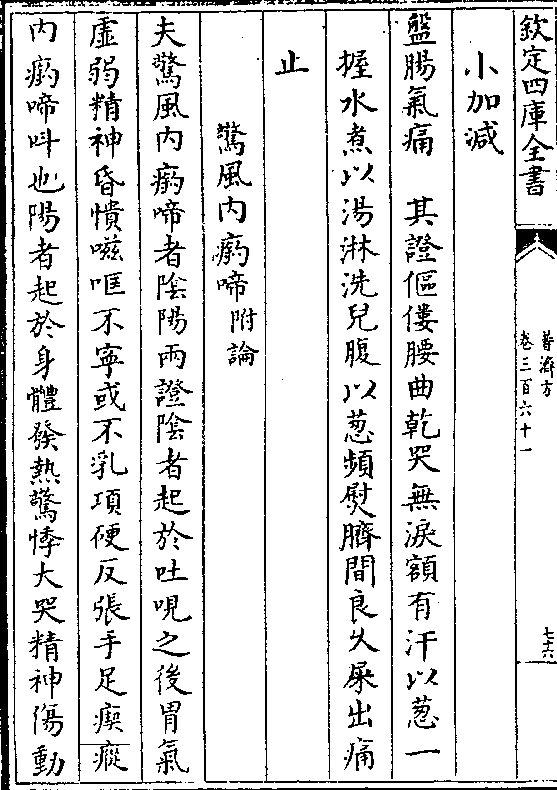 欽定四庫全書
普濟方
卷三百六十一
七十六
小加減
盤腸氣痛　其證傴僂腰曲乾哭無淚額有汗以葱一
握水煮以湯淋洗兒腹以葱頻熨臍間良久尿出痛
止
驚風内瘹啼附論
夫驚風内瘹啼者隂陽兩證隂者起於吐哯之後胃氣
虚弱精神昏憒嗞哐不寧或不乳項硬反張手足瘈瘲
内瘹啼呌也陽者起於身體發熱驚悸大哭精神傷動